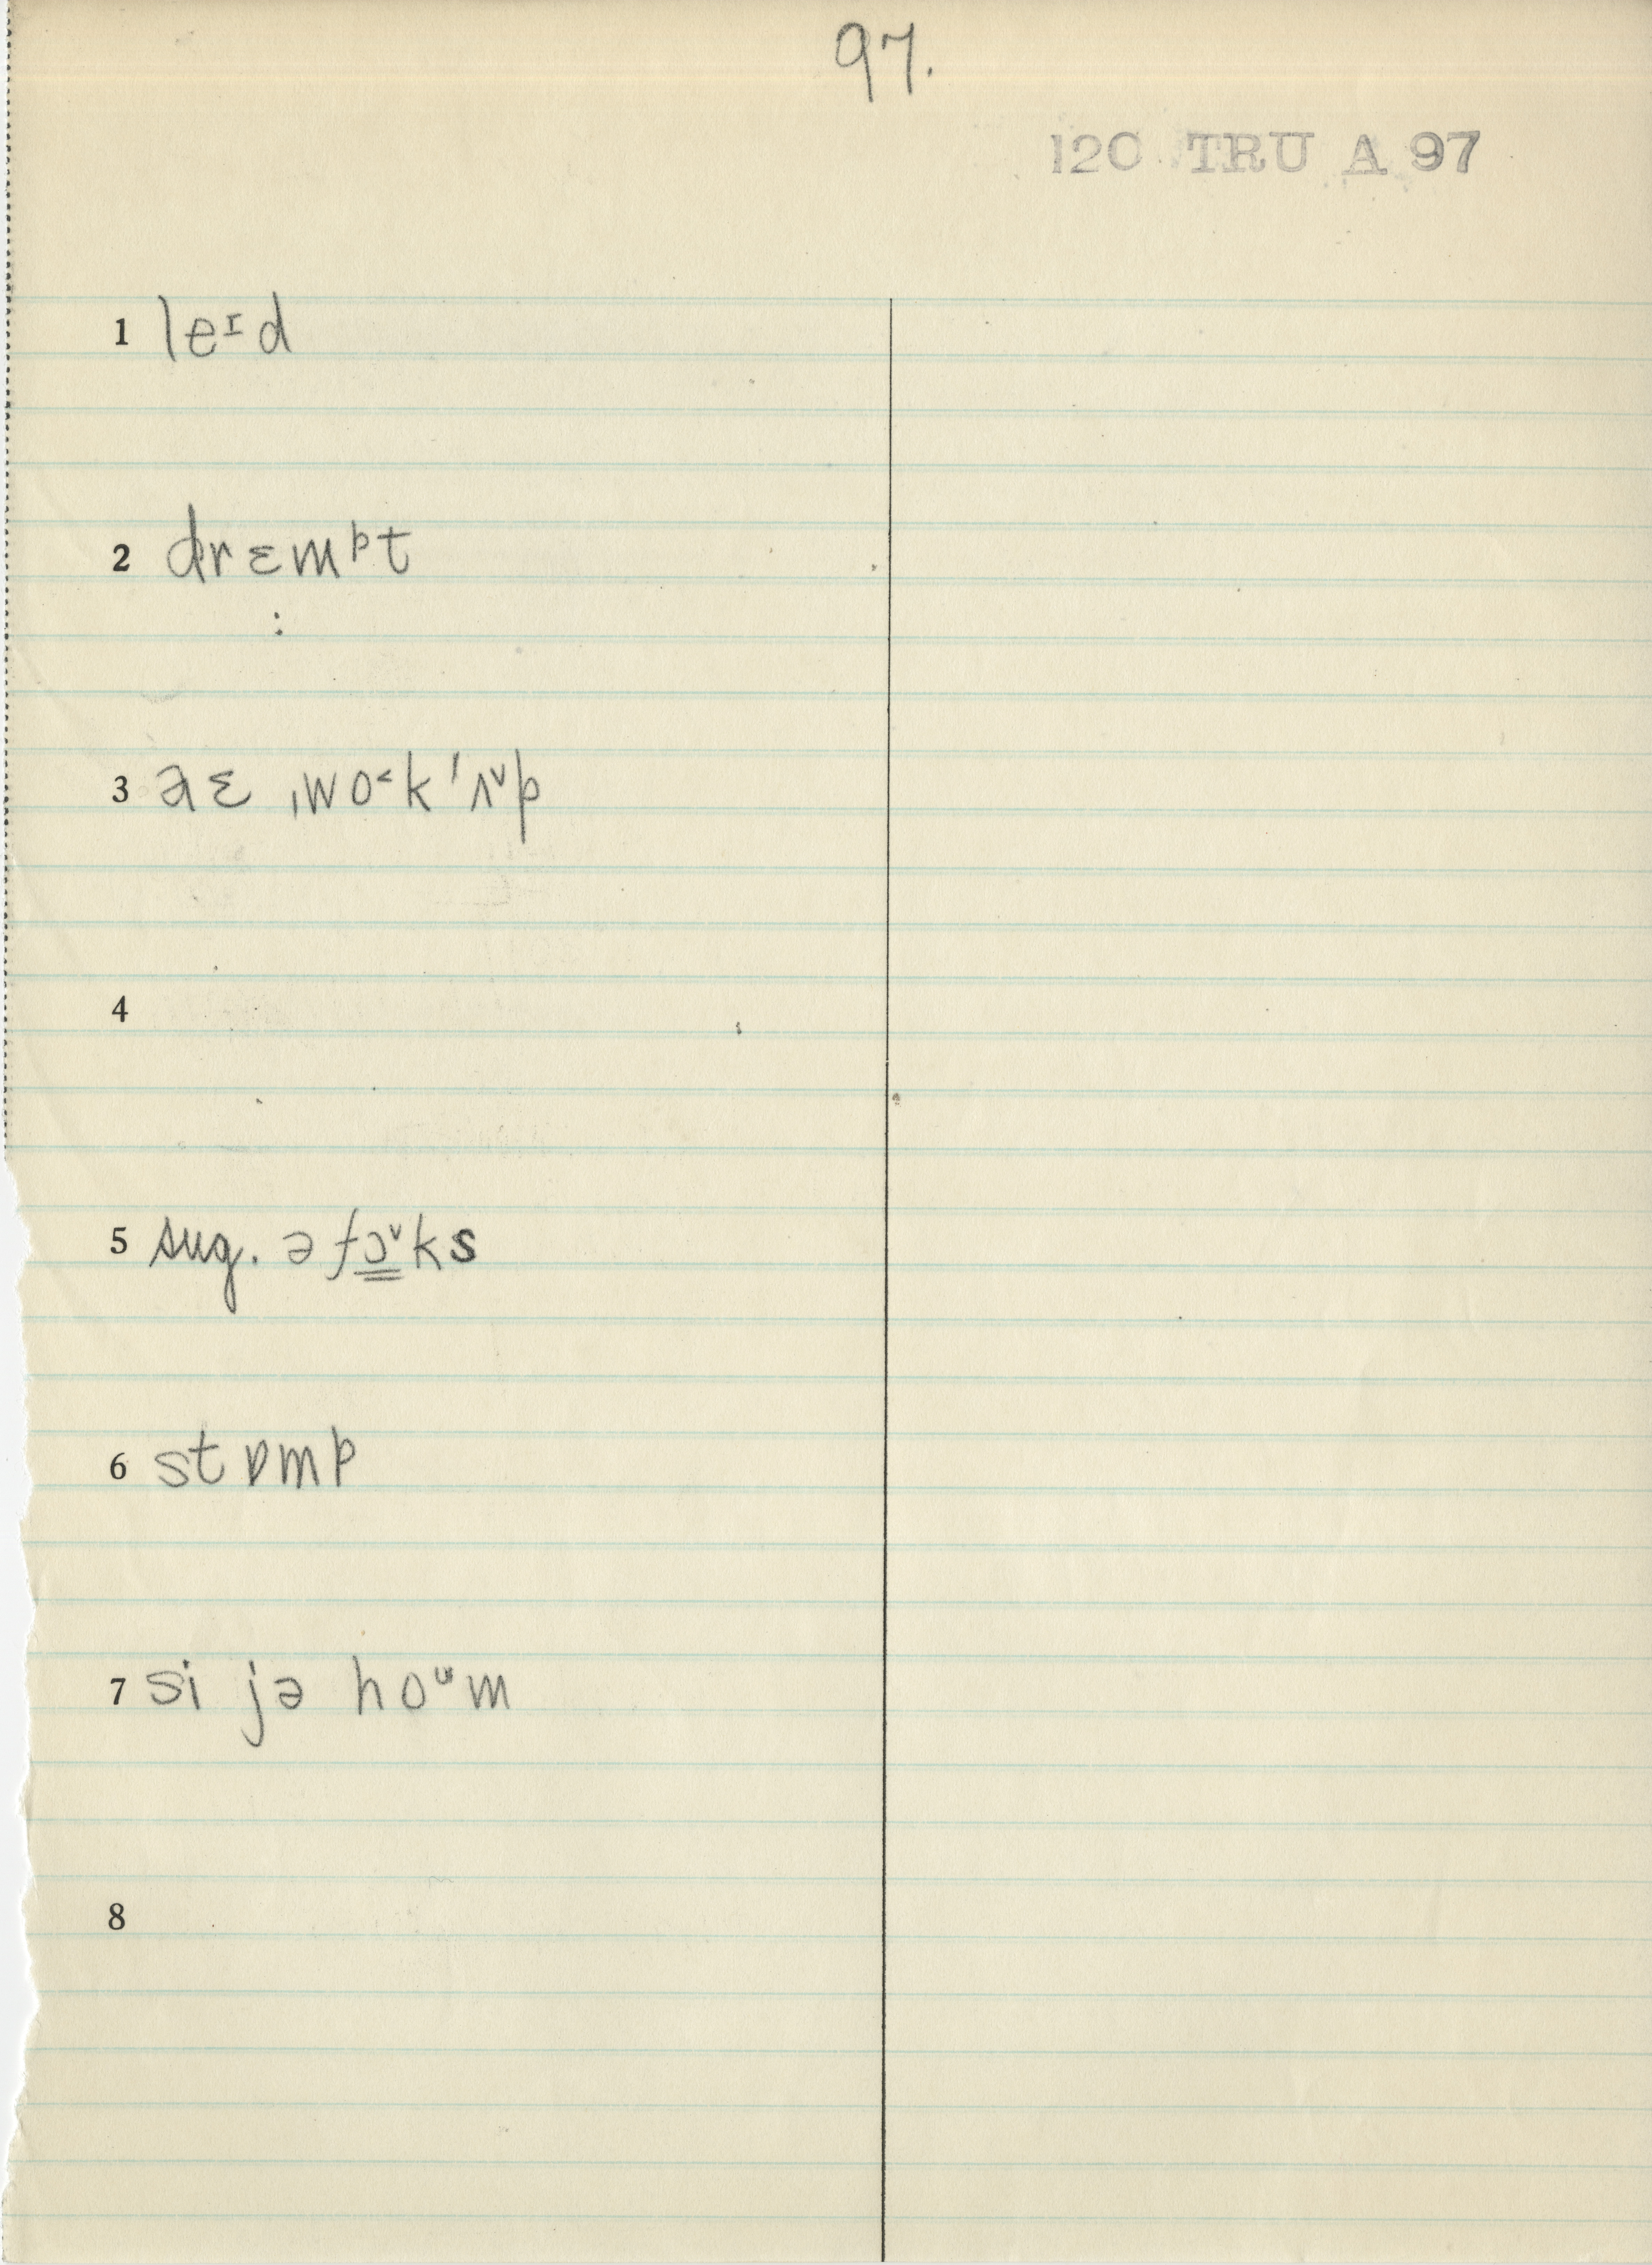 97.
120 TRU A 97
1 leᶦd
2 drɛmᵖt
:
3 aɛ ˌwo˂k ˈʌ˅p
4
5 sug. ə fɔ̳˅ks
6 stɒmp
7 si jə hoᵘm
8